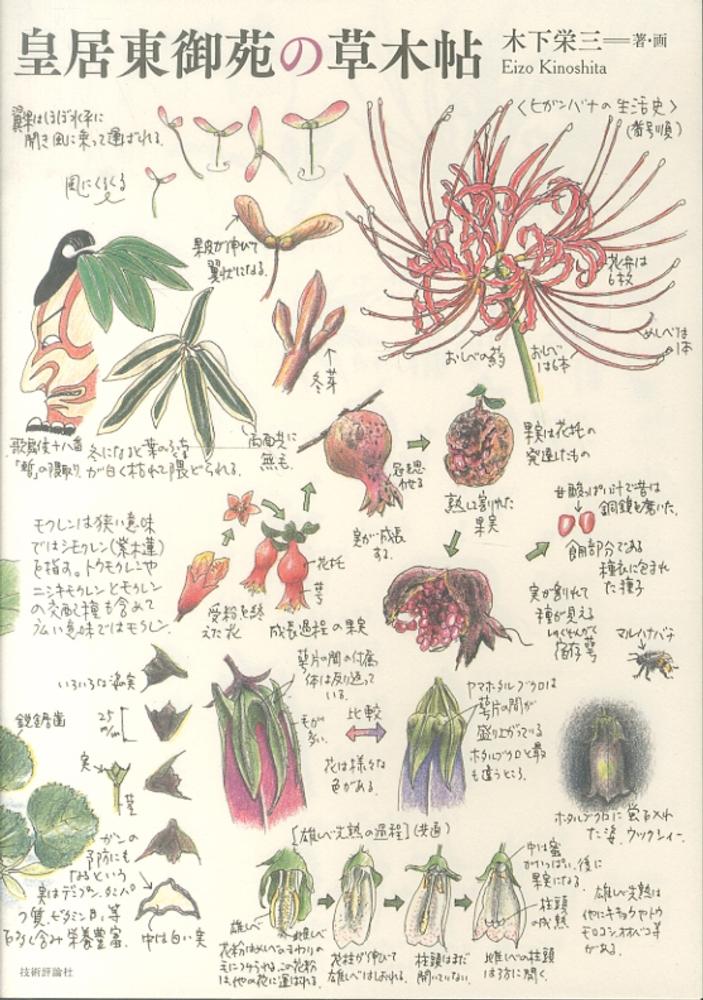 皇居東御苑の草木帖
木下栄三＝著・画
Eizo Kinoshita
翼果はほぼ水平に
開き風に乗って運ばれる。
風にくるくる
果皮が伸びて
翼状になる。
冬芽
〈ヒガンバナの生活史〉
(番号順)
花弁は
6枚
めしべは
1本
おしべの葯
おしべ
は6本
歌舞伎十八番
の隈取り
冬になると葉のふち
が白く枯れて隈どられる。
両面共に
無毛
実が成長
する。
熟し割れた
果実
果実は花托の
発達したもの
甘酸っぱい汁で昔は
銅鏡を磨いた。
食用部分である
種衣に包まれ
た種子
実が割れて
種が見える
宿存萼
マルハナバチ
モクレンは狭い意味
ではシモクレン(紫木蓮)
を指す。トウモクレンや
ニシキモクレンとモクレン
の交配種も含めて
広い意味ではモクレン。
受粉を終
えた花
花托
萼
成長過程の果実
いろいろな姿の実
鋭鋸歯
25
m/m
実
茎
ガンの
予防にも
なるという
実はデンプン、タンパ
ク質、ビタミンB1等
を多く含み栄養豊富。
中は白い実
萼片の間の付属
体は反り返って
いる。
毛が
多い。
比較
花は様々な
色がある。
ヤマホタルブクロは
萼片の間が
盛り上がっている
ホタルブクロと最
も違うところ。
ホタルブクロに蛍を入れ
た姿。ウックシィー。
[雄しべ先熟の過程](共通)
雄しべ
雌しべ
花粉はめしべのまわりの
毛につけられる。この花粉
は、他の花に運ばれる。
花柱が伸びて
雄しべはしおれる。
柱頭はまだ
開いていない。
雌しべの柱頭
は3方に開く。
中は蜜
がいっぱい。後に
果実になる。
柱頭
の成熟
雄しべ先熟は
他にキキョウやトウ
モロコシ、オオバコ等
がある。
技術評論社